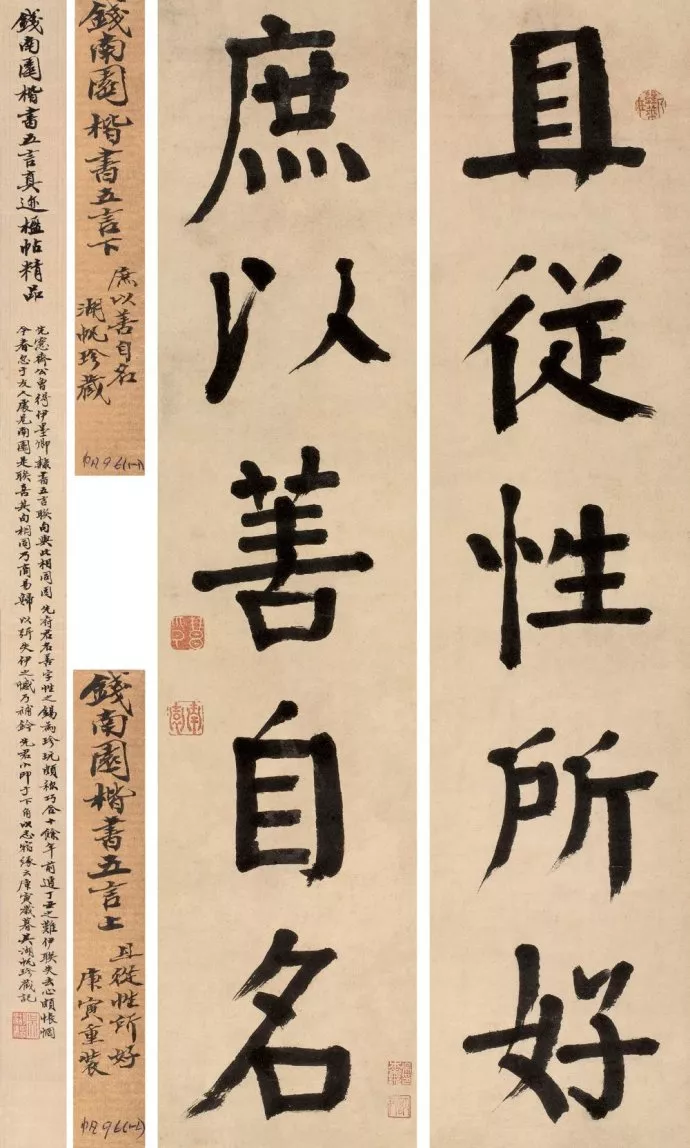 且従性所好
庶以善自名
南園
錢南園楷書五言上
且從性所好
庚寅重裝
錢南園楷書五言下
庶以善自名
湖帆珍藏
錢南園楷書五言真迹楹帖精品
先愙齋公曾得伊墨卿隸書五言聯句與此相同因先府君名善字性之錫而珍玩頗称巧合十餘年前遭丁丑之難伊聯失去心頗悵惘
今春忽于友人處見南園是聯喜其句相同乃商易歸以失伊之憾乃補鈐先君小印于下角以志緣云庚寅歲暮吳湖帆珍藏記